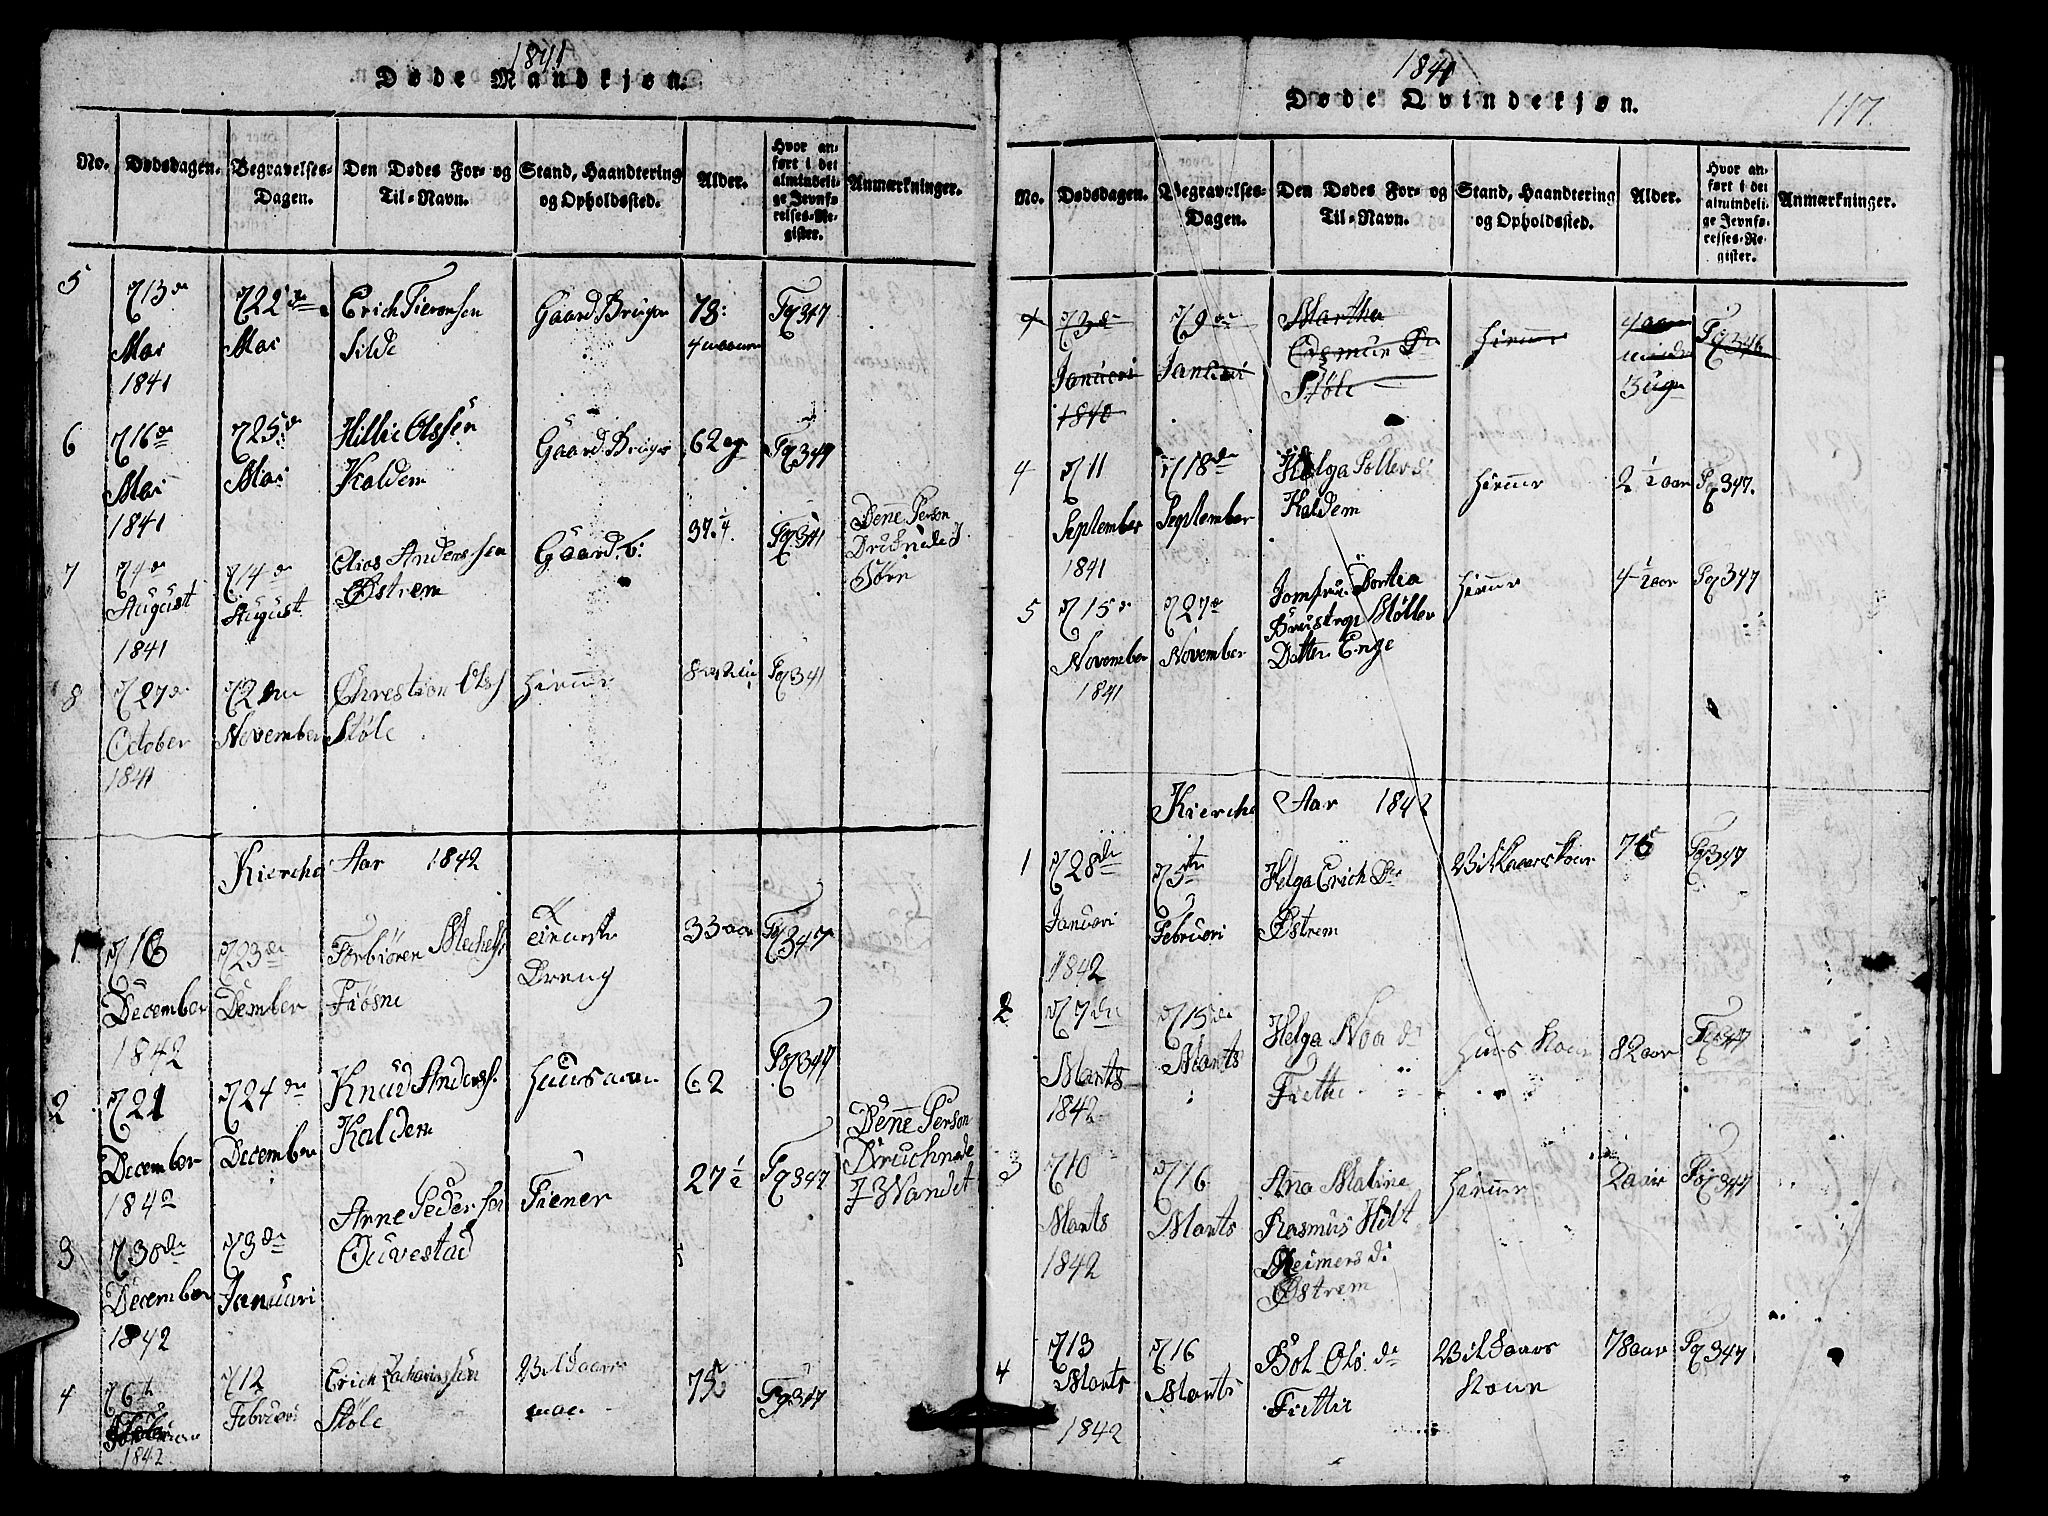 1841
Døde Mandkjøn.
No.
Dødsdagen.
Begravelses-
Dagen.
Den Dødes For- og
Til-Navn.
Stand, Haandtering
og Opholdssted.
Alder.
Hvor an-
ført i det
almindeli-
ge Jevnfø-
relses-Re-
gister.
Anmærkninger.
5
13de
Mai
1841
22de
Mai
Silde
Gaard Bruger
78:
Fg 347
6
16de
Mai
1841
25de
Mai
Hillie Olssen
Kaldem
Gaard Bruger
62
Fg 347
7
4de
August
1841
14de
August
Elias Anderssen
Østrem
Gaard b:
37 1/4
Fg 341
Denne Person
Druchnede I
Søen
8
27de
October
1841
2den
November
Chrestian Ols
Støle
Hiemmr
Fg 341
Kierche Aar 1842
1
16
December
1842
23de
Dember
Torbiøren Mechels
Fiøsne
Tieneste
Dreng
33 aar
Fg 347
2
21
December
1842
24de
December
Knud Anders.
Kaldem
Huusman
62
Fg 347
3
30de
December
1842
3de
Januari
Arne Pederssen
Tiener
27 1/2
Fg 347
Denne Person
Druchnede
I Vandet
4
6te
1842
12
Februari
Erich Zachariassen
Støle
Vilkaars
man
75
Fg 347
1841
Døde Qvindekjøn.
117
No.
Dødsdagen.
Begravelses-
Dagen.
Den Dødes For- og
Til-Navn.
Stand, Haandtering
og Opholdssted.
Alder.
Hvor an-
ført i det
almindeli-
ge Jevnfø-
relses-Re-
gister.
Anmærkninger.
3de
Januari
1840
9de
Januari
Martha
Støle
Hiemmr
Fg 346
4
11
September
1841
18de
September
Helga
Kaldem
Hiemmr
2 1/2 aar
Fg 347.
5
15de
November
1841
27de
November
Jomfru Dortea
Brustrop Møller
Datter Enge
Hiemmr
4 1/2 aar
Fg 347
Kierche Aar 1842
1
28de
Januari
1842
5te
Februari
Helga Erich Dr
Østrem
Vilkaarskone
75
Fg 347
2
7de
Marts
1842
15de
Marts
Helga Noa d
Frette
Huus Kone
82 aar
Fg 347
3
10
Marts
1842
16
Marts
Ana Maline
Rasmus Hilt
Reimers d
Østrem
Hiemmr
2 aar
Fg 347
4
13
Marts
1842
16
Marts
Bol Ols de
Frette
Vilkaars
Kone
78 aar
Fg 347